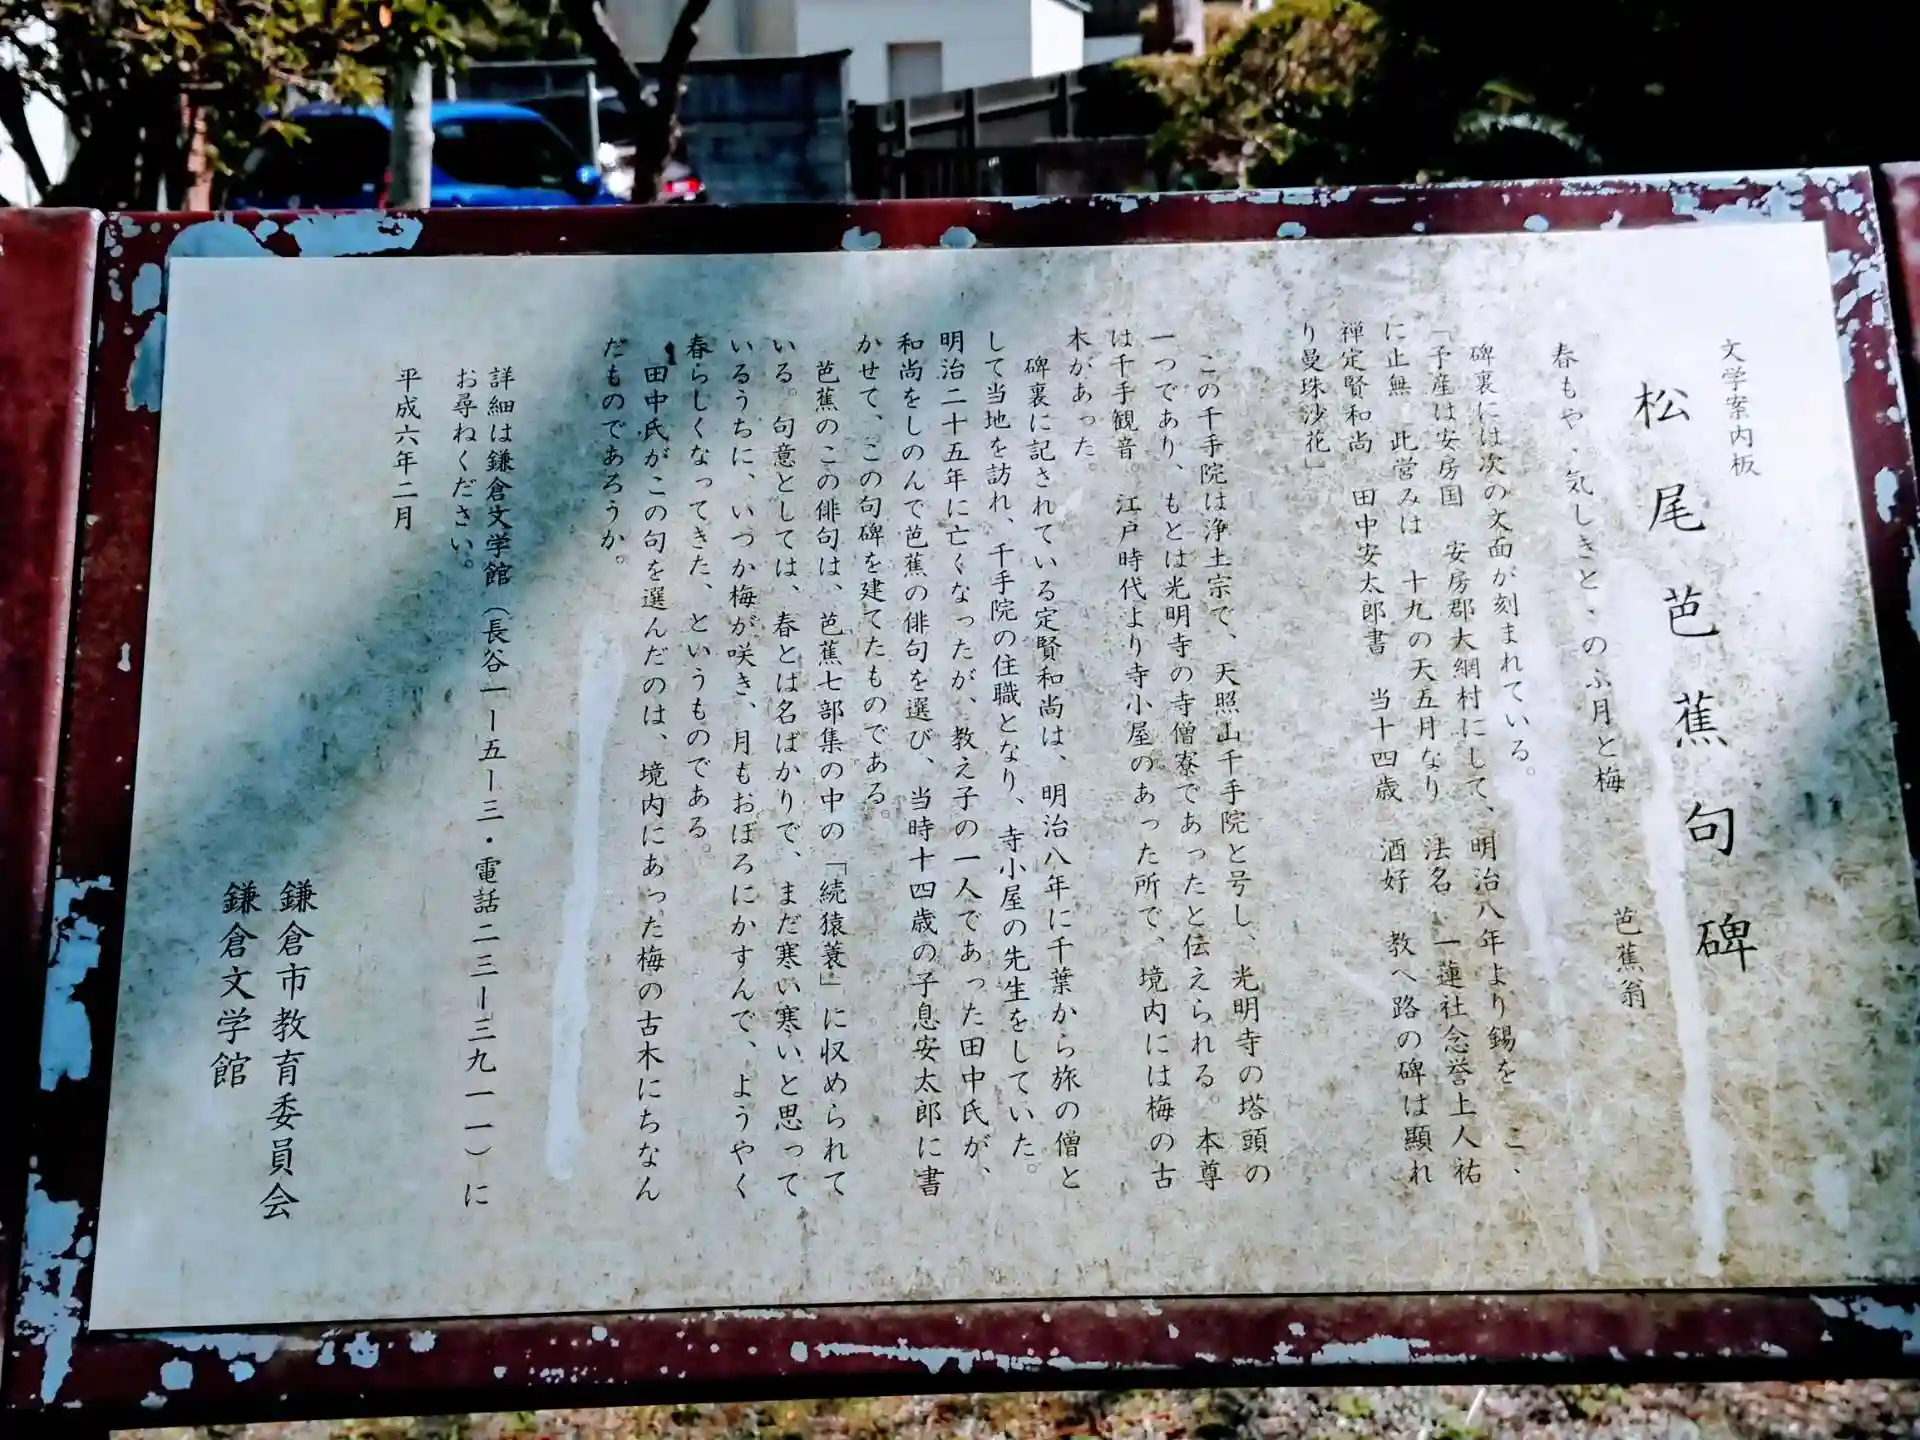 文学案内板
松尾芭蕉句碑
春もやゝ気しきとゝのふ月と梅 芭蕉翁
碑裏には次の文面が刻まれている。
「予産は安房国 安房郡大網村にして、明治八年より錫を こゝ
に止無 此営みは 十九の天五月なり 法名 一蓮社念誉上人祐
禅定賢和尚 田中安太郎書 当十四歳 酒好 教へ路の碑は顕れ
り曼珠沙花」
この千手院は浄土宗で、天照山千手院と号し、光明寺の塔頭の
一つであり、もとは光明寺の寺僧寮であったと伝えられる。本尊
は千手観音。江戸時代より寺小屋のあった所で、境内には梅の古
木があった。
碑裏に記されている定賢和尚は、明治八年に千葉から旅の僧と
して当地を訪れ、千手院の住職となり、寺小屋の先生をしていた。
明治二十五年に亡くなったが、教え子の一人であった田中氏が、
和尚をしのんで芭蕉の俳句を選び、当時十四歳の子息安太郎に書
かせて、この句碑を建てたものである。
芭蕉のこの俳句は、芭蕉七部集の中の「続猿蓑」に収められて
いる。句意としては、春とは名ばかりで、まだ寒い寒いと思って
いるうちに、いつか梅が咲き、月もおぼろにかすんで、ようやく
春らしくなってきた、というものである。
田中氏がこの句を選んだのは、境内にあった梅の古木にちなん
だものであろうか。
詳細は鎌倉文学館（長谷一ー五ー三・電話二三ー三九一一）に
お尋ねください。
平成六年二月
鎌倉市教育委員会
鎌倉文学館